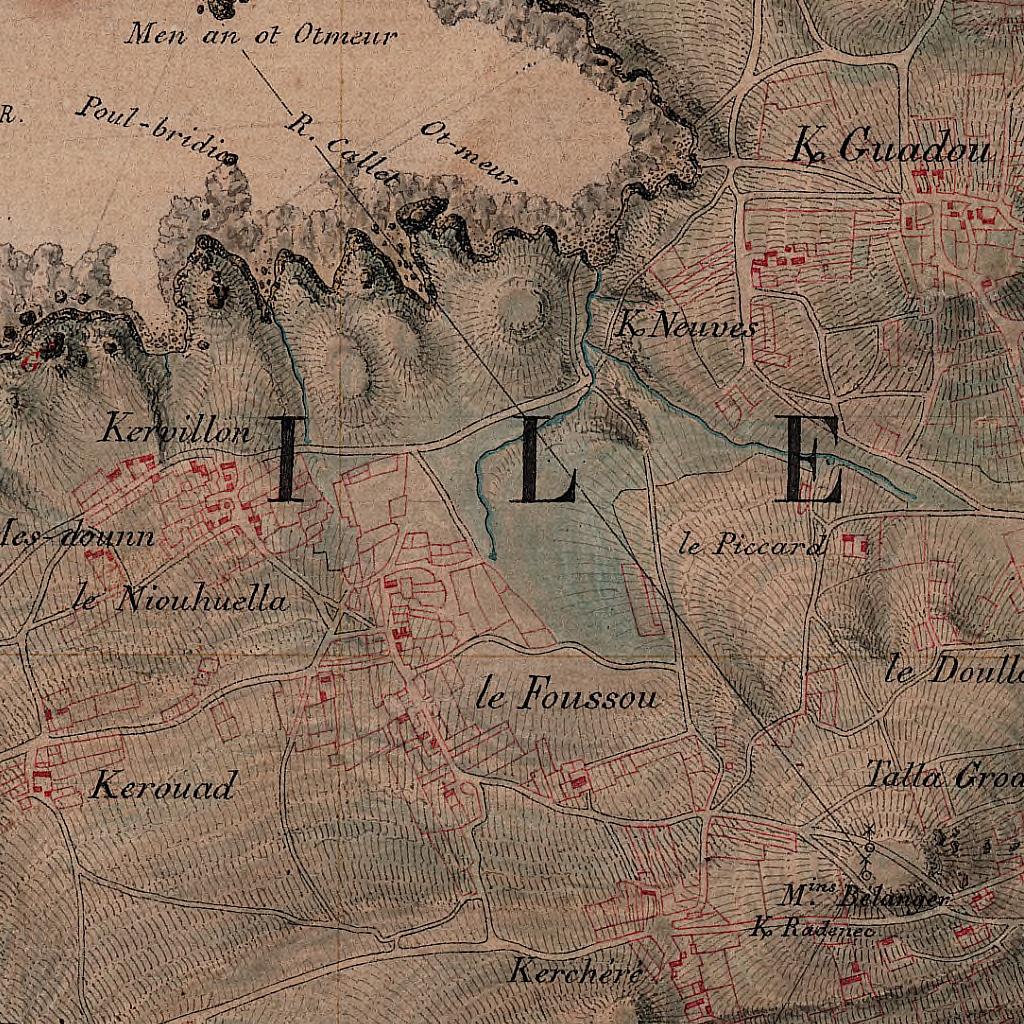 Men an ot Otmeur
R.
Poul-bridic
R. Callet
Ot-meur
K. Guadou
K. Neuves
Kervillon
ILE
Mes-dounn
le Piccard
le Niouhuella
le Doull
le Foussou
Kerouad
Talla Groa
M.ins Bélanger
K. Radenec
Kerchéré